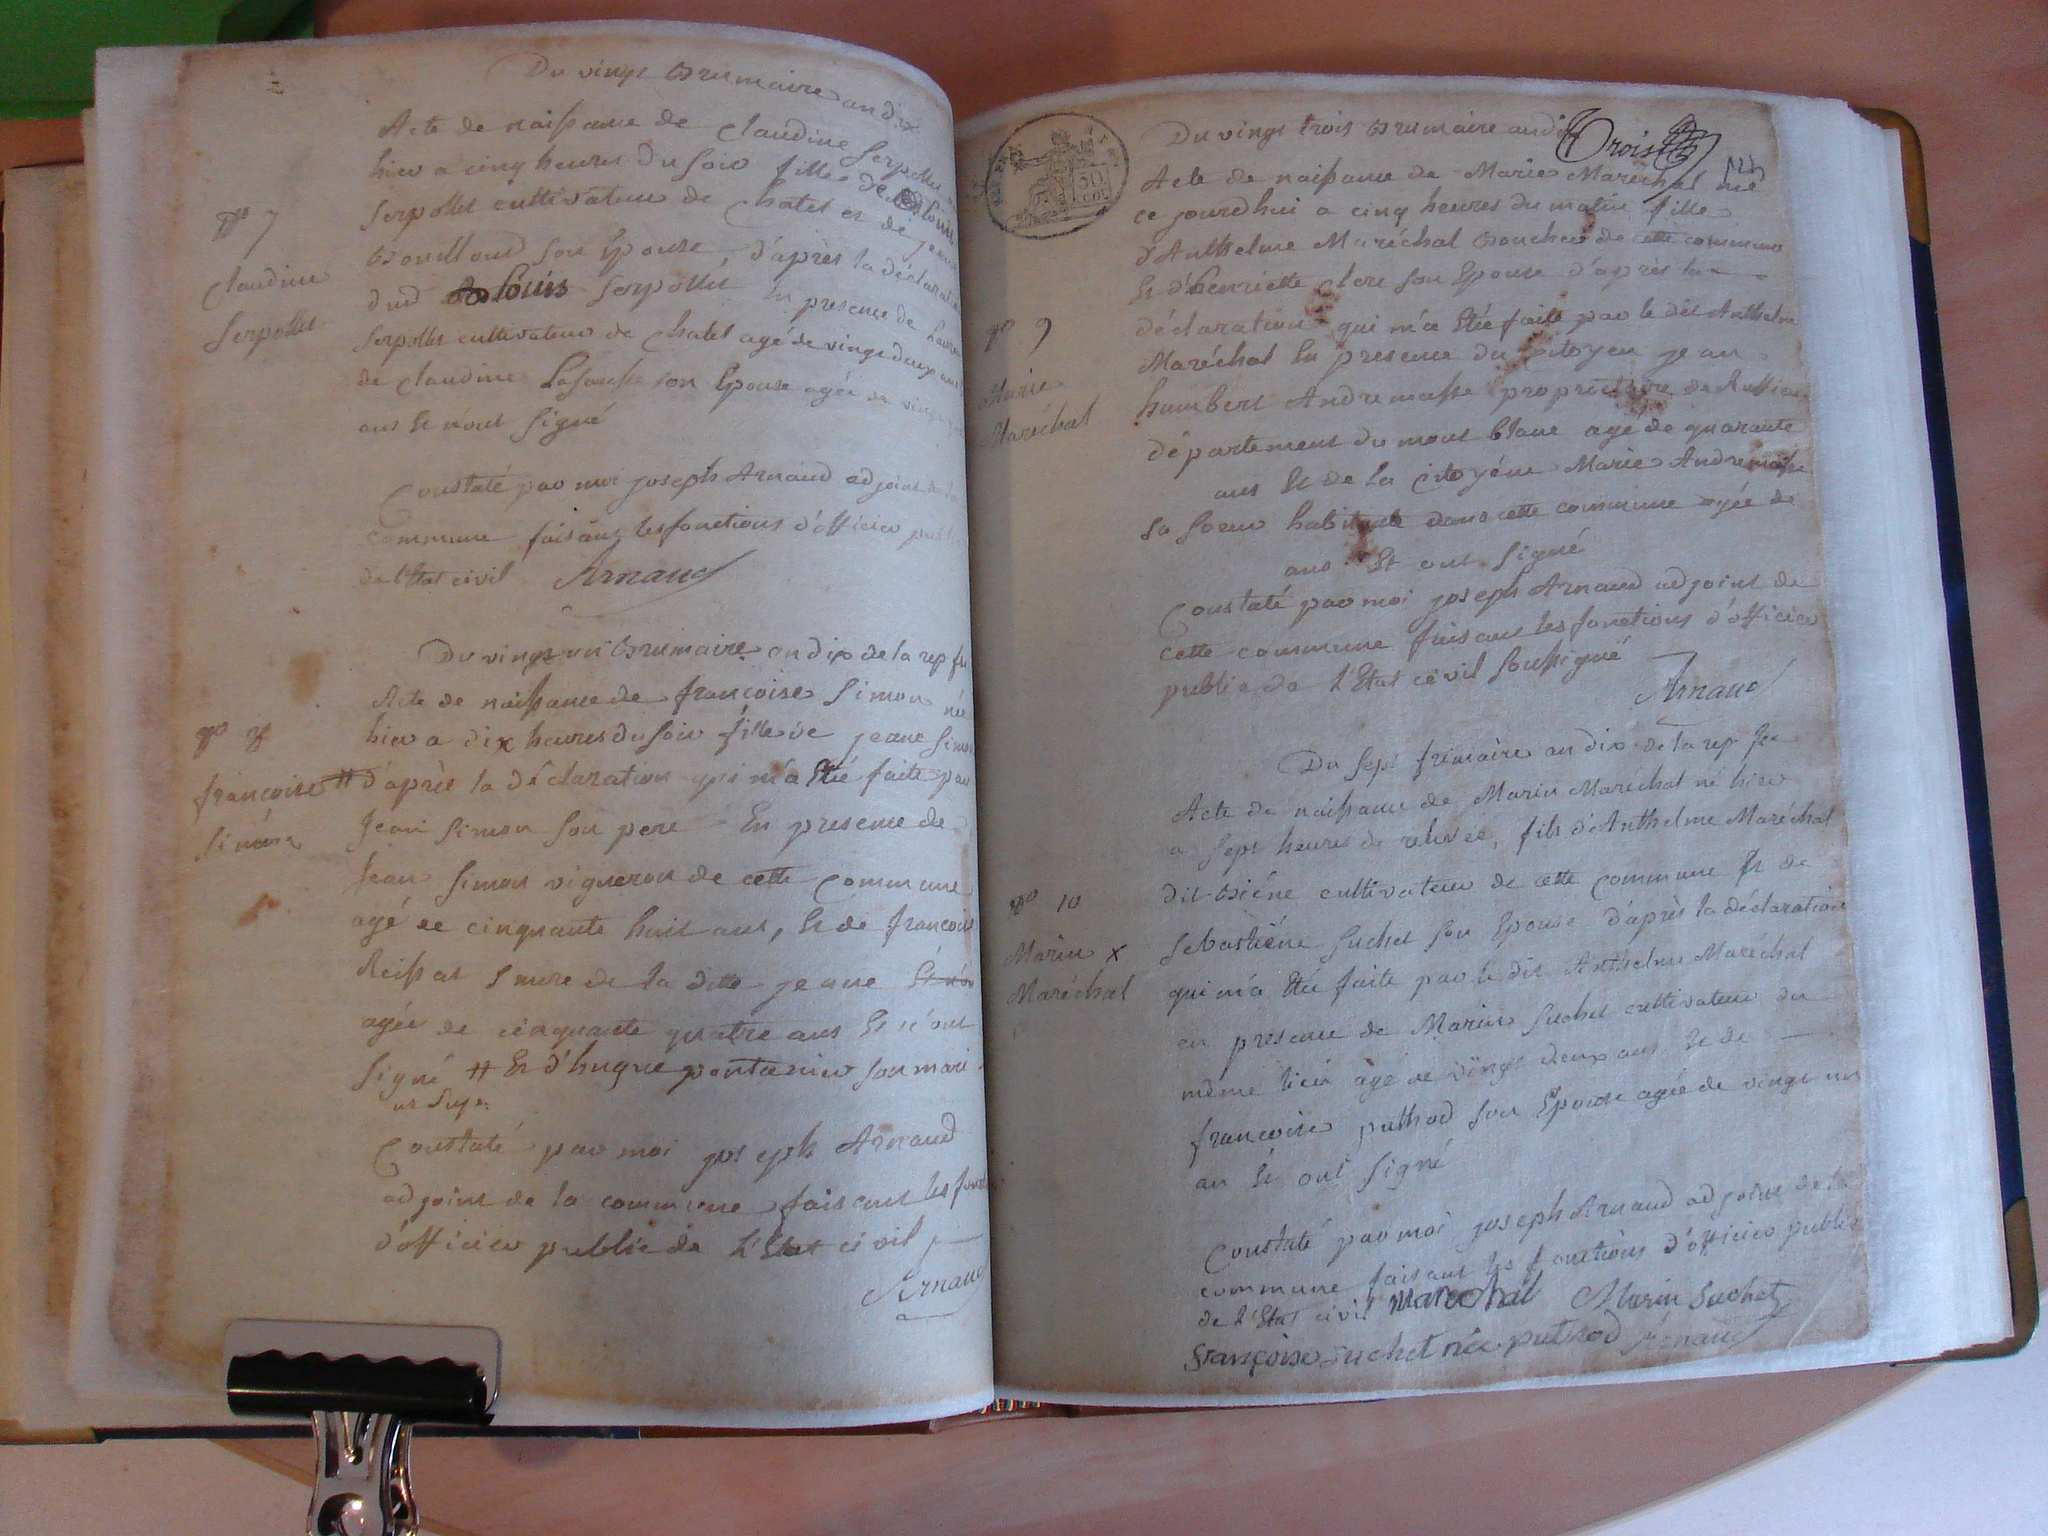 Du vingt Brumaire an dix
Acte de naissance de Claudine Serpollet
hier a cinq heures du soir fille de Louis
Serpollet cultivateur de Chatel et de jeanne
son Epouse, d'après la déclaration
dud Louis Serpollet En presence de
Serpollet cultivateur de Chatel agé de vingt deux ans
de Claudine son Epouse agée de vingt
ans Et n'ont signé
N° 7
Claudine
Serpollet
Constaté par moi joseph Arnaud adjoint
commune faisant les fonctions d'officier public
de l'Etat civil Arnaud
Du vingt un Brumaire an dix de la rep fr
Acte de naissance de françoise Simon née
hier a dix heures du soir fille de jeane Simon
# d'après la déclaration qui m'a Eté faite par
Jean Simon son pere En presence de
Jean Simon vigneron de cette Commune
agé de cinquante huit ans, Et de françoise
Reissat mere de la ditte jeane
agée de cinquante quatre ans Et n'ont
signé # Et d'hugue pontanier son mari
ut supr.
N° 8
françoise
Simon
Constaté par moi joseph Arnaud
adjoint de la commune faisant les fonct
d'officier public de l'Etat civil
Arnaud
Trois
Du vingt trois Brumaire an dix
Acte de naissance de Marie Maréchal née
ce jourdhui a cinq heures du matin fille
d'Anthelme Maréchal Boucher de cette commune
Et d'henriette Clerc son Epouse d'après la
déclaration qui m'a Eté faite par le dit Anthelme
Maréchal En presence du citoyen jean
humbert Andremasse propriétaire de Ruffieu
département du mont blanc agé de quarante
ans Et de la Citoyéne Marie Andremasse
sa soeur habitante dans cette commune agée de
ans Et ont signé
N° 9
Marie
Maréchal
Constaté par moi joseph Arnaud adjoint de
Cette commune faisant les fonctions d'officier
public de l'Etat civil soussigné
Arnaud
Du sept frimaire an dix de la rep fr
Acte de naissance de Marin Maréchal né hier
a sept heures de relevée, fils d'Anthelme Maréchal
dit Biéne cultivateur de cette commune Et de
Sebastiéne Suchet son Epouse d'après la déclaration
qui m'a Eté faite par le dit Anthelme Maréchal
en presence de Marin Suchet cultivateur du
même lieu agé de vingt deux ans Et de
françoise puthod son Epouse agée de vingt un
an Et ont signé
N° 10
Marin x
Maréchal
Constaté par moi joseph Arnaud adjoint de la
commune faisant les fonctions d'officier public
de l'Etat civil Marechal Marin Suchet
françoise Suchet née putod Arnaud